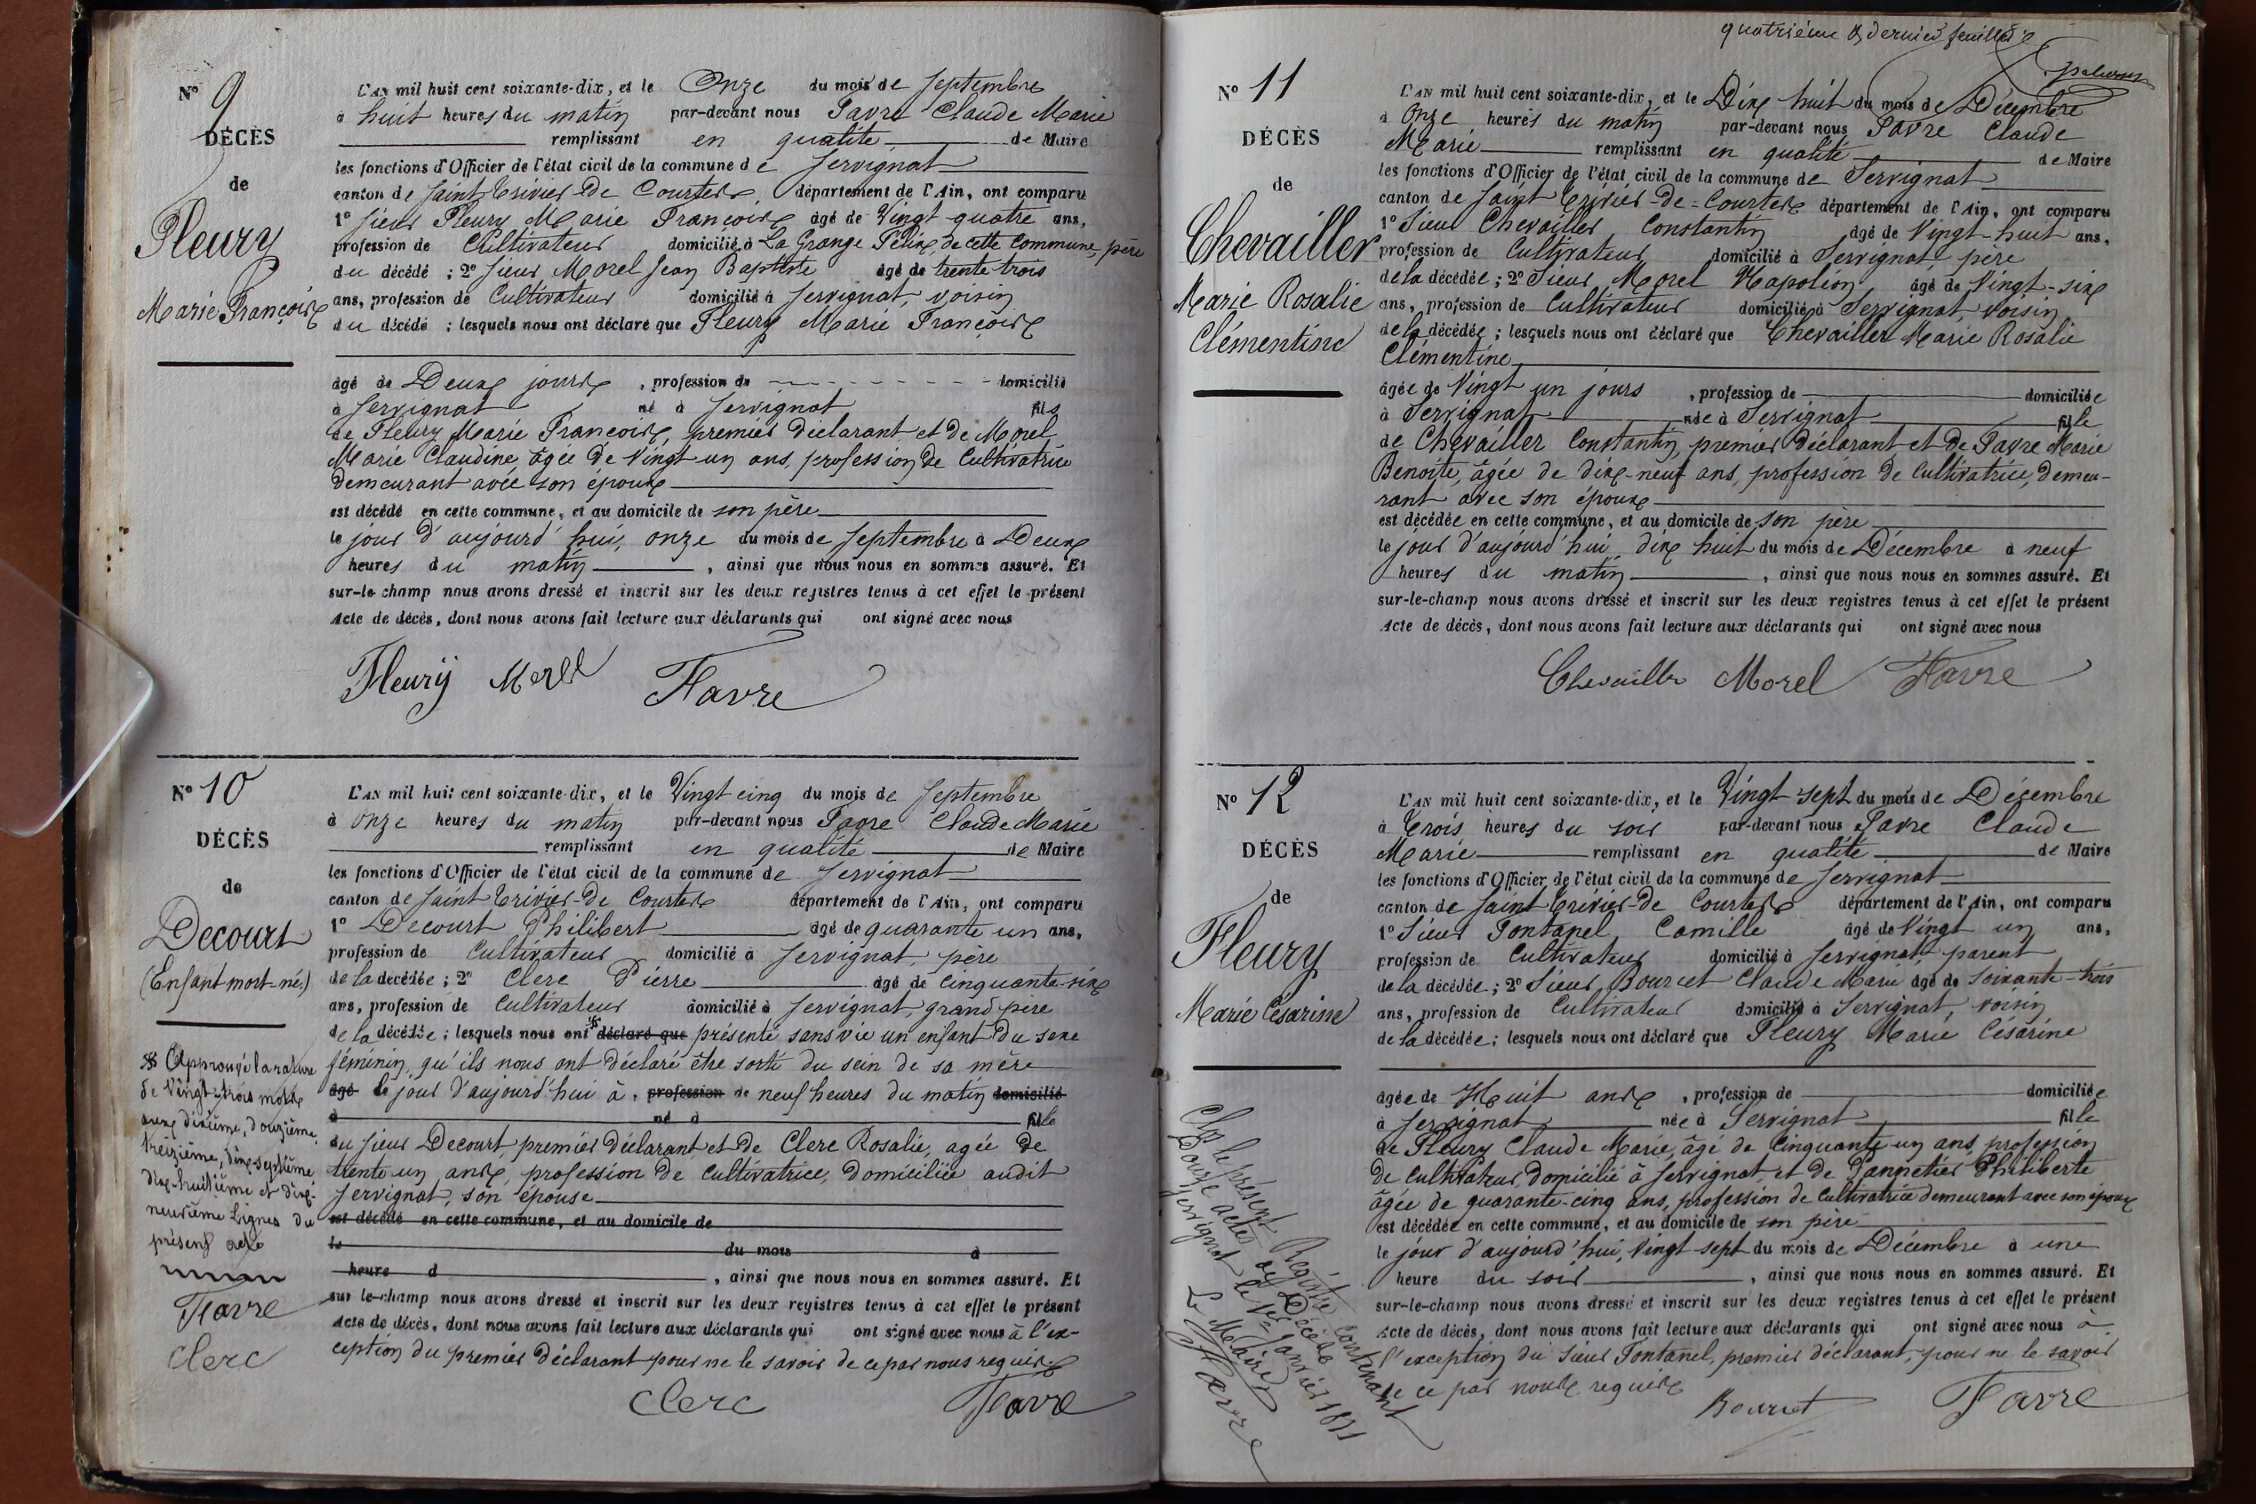 N° 9
DÉCÈS
de
Fleury
Marie Françoise
L'AN mil huit cent soixante-dix, et le Onze du mois de Septembre
à huit heures du matin par-devant nous Favre Claude Marie
remplissant en qualité de Maire
les fonctions d'Officier de l'état civil de la commune de Servignat
canton de Saint Trivier-de Courtes département de l'Ain, ont comparu
1° Sieur Fleury Marie François âgé de Vingt-quatre ans,
profession de Cultivateur domicilié à La Grange Felix de cette Commune, père
du décédé ; 2° Sieur Morel Jean Baptiste âgé de trente trois
ans, profession de Cultivateur domicilié à Servignat, voisin
du décédé ; lesquels nous ont déclaré que Fleury Marie François
âgé de Deux jours , profession de domicilié
à Servignat né à Servignat fils
de Fleury Marie François, premier déclarant et de Morel
Marie Claudine âgée de Vingt un ans, profession de Cultivatrice
demeurant avec son époux
est décédé en cette commune, et au domicile de son père
le jour d'aujourd'hui, onze du mois de Septembre à Deux
heures du matin , ainsi que nous nous en sommes assuré. Et
sur-le-champ nous avons dressé et inscrit sur les deux registres tenus à cet effet le présent
Acte de décès, dont nous avons fait lecture aux déclarants qui ont signé avec nous
Fleury Morel Favre
N° 10
DÉCÈS
de
Decourt
(Enfant mort-né.)
L'AN mil huit cent soixante-dix, et le Vingt cinq du mois de Septembre
à onze heures du matin par-devant nous Favre Claude Marie
remplissant en qualité de Maire
les fonctions d'Officier de l'état civil de la commune de Servignat
canton de Saint Trivier-de Courtes département de l'Ain, ont comparu
1° Decourt Philibert âgé de quarante un ans,
profession de Cultivateur domicilié à Servignat, père
de la décédée ; 2° Clerc Pierre âgé de cinquante-six
ans, profession de Cultivateur domicilié à Servignat, grand père
de la décédée ; lesquels nous ont déclaré que présenté sans vie un enfant du sexe
féminin, qu'ils nous ont déclaré être sorti du sein de sa mère
âgé le jour d'aujourd'hui à , profession de neuf heures du matin domicilié
à né à fille
du sieur Decourt, premier déclarant et de Clerc Rosalie, agée de
trente un ans, profession de Cultivatrice, domiciliée audit
Servignat, son épouse
est décédé en cette commune, et au domicile de
le du mois à
heure d , ainsi que nous nous en sommes assuré. Et
sur le-champ nous avons dressé et inscrit sur les deux registres tenus à cet effet le présent
Acte de décès, dont nous avons fait lecture aux déclarants qui ont signé avec nous à l'ex-
ception du premier déclarant pour ne le savoir de ce par nous requis
Clerc Favre
Approuvé la rature
de Vingt-trois mots
aux dixième, douzième,
treizième, dix-septième,
dix-huitième et dix-
neuvième Lignes du
présent acte
Favre
Clerc
quatrième & dernier feuillet
N° 11
DÉCÈS
de
Chevailler
Marie Rosalie
Clémentine
L'AN mil huit cent soixante-dix, et le Dix huit du mois de Décembre
à Onze heures du matin par-devant nous Favre Claude
Marie remplissant en qualité de Maire
les fonctions d'Officier de l'état civil de la commune de Servignat
canton de Saint Trivier-de-Courtes département de l'Ain, ont comparu
1° Sieur Chevailler Constantin âgé de Vingt-huit ans,
profession de Cultivateur domicilié à Servignat père
de la décédée ; 2° Sieur Morel Napoléon âgé de Vingt-six
ans, profession de Cultivateur domicilié à Servignat, voisin
de la décédée ; lesquels nous ont déclaré que Chevailler Marie Rosalie
Clémentine
âgée de Vingt un jours , profession de domiciliée
à Servignat née à Servignat fille
de Chevailler Constantin, premier déclarant, et de Favre Marie
Benoite, âgée de dix-neuf ans, profession de Cultivatrice, demeu-
rant avec son époux
est décédée en cette commune, et au domicile de son père
le jour d'aujourd'hui, dix huit du mois de Décembre à neuf
heures du matin , ainsi que nous nous en sommes assuré. Et
sur-le-champ nous avons dressé et inscrit sur les deux registres tenus à cet effet le présent
Acte de décès, dont nous avons fait lecture aux déclarants qui ont signé avec nous
Chevailler Morel Favre
N° 12
DÉCÈS
de
Fleury
Marie Césarine
L'AN mil huit cent soixante-dix, et le Vingt sept du mois de Décembre
à Trois heures du soir par-devant nous Favre Claude
Marie remplissant en qualité de Maire
les fonctions d'Officier de l'état civil de la commune de Servignat
canton de Saint Trivier-de Courtes département de l'Ain, ont comparu
1° Sieur Fontanel Camille âgé de Vingt un ans,
profession de Cultivateur domicilié à Servignat parent
de la décédée ; 2° Sieur Bourcet Claude Marie âgé de soixante-trois
ans, profession de Cultivateur domicilié à Servignat, voisin
de la décédée ; lesquels nous ont déclaré que Fleury Marie Césarine
âgée de Huit ans , profession de domiciliée
à Servignat née à Servignat fille
de Fleury Claude Marie, âgé de Cinquante un ans, profession
de Cultivateur, domicilié à Servignat, et de Pannetier Philiberte
âgée de quarante-cinq ans, profession de Cultivatrice demeurant avec son époux
est décédée en cette commune, et au domicile de son père
le jour d'aujourd'hui, Vingt-sept du mois de Décembre à une
heure du soir , ainsi que nous nous en sommes assuré. Et
sur-le-champ nous avons dressé et inscrit sur les deux registres tenus à cet effet le présent
Acte de décès, dont nous avons fait lecture aux déclarants qui ont signé avec nous à
l'exception du sieur Fontanel, premier déclarant, pour ne le savoir
de ce par nous requis
Bourcet Favre
Clos le présent Registre contenant
Douze actes de Décès
Servignat le 1er Janvier 1871
Le Maire
Favre